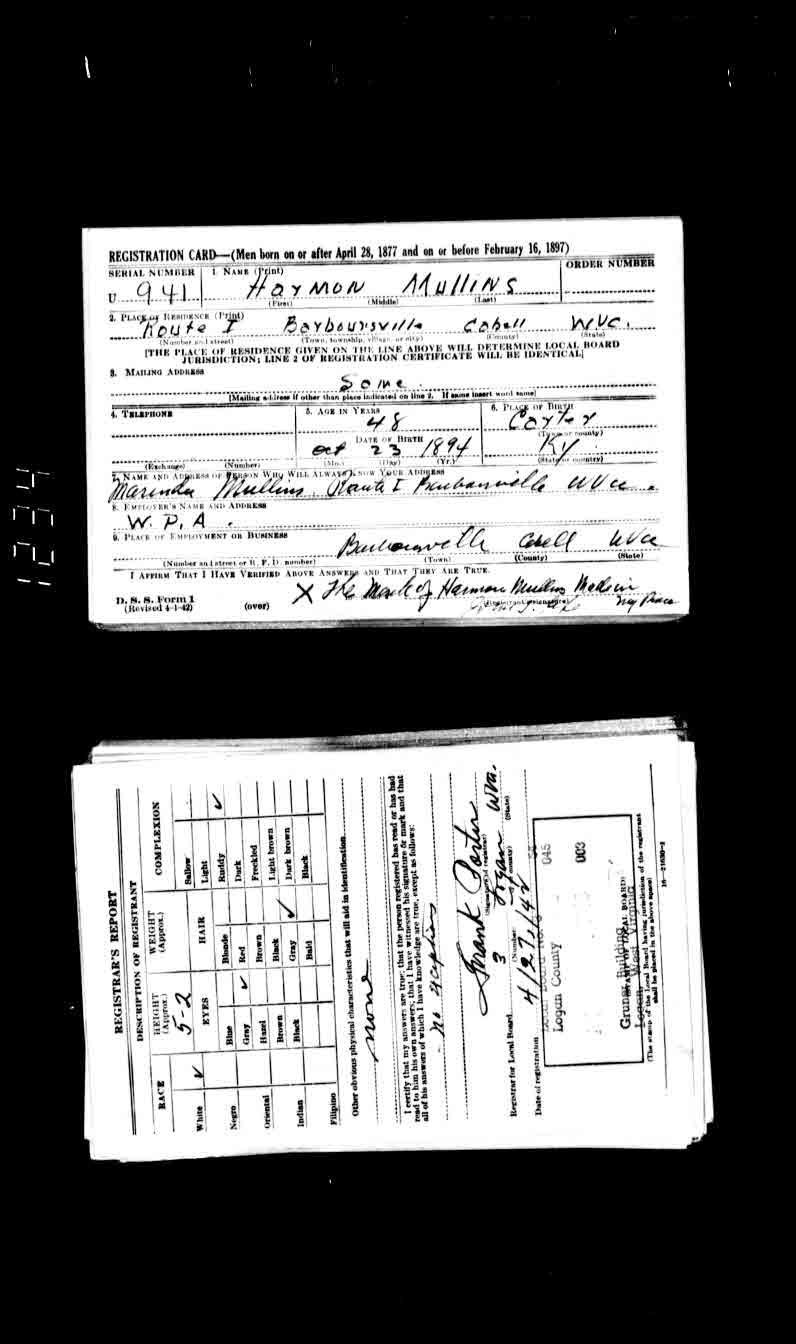 1234
REGISTRATION CARD—(Men born on or after April 28, 1877 and on or before February 16, 1897)
SERIAL NUMBER 1. NAME (Print) ORDER NUMBER
U 941 Harmon Mullins
(First) (Middle) (Last)
2. PLACE OF RESIDENCE (Print)
Route I Barboursville Cabell WVa.
(Number and street) (Town, township, village, or city) (County) (State)
[THE PLACE OF RESIDENCE GIVEN ON THE LINE ABOVE WILL DETERMINE LOCAL BOARD
JURISDICTION; LINE 2 OF REGISTRATION CERTIFICATE WILL BE IDENTICAL]
3. MAILING ADDRESS
Same
[Mailing address if other than place indicated on line 2. If same insert word same]
4. TELEPHONE 5. AGE IN YEARS 6. PLACE OF BIRTH
48 Carter
(Town or county)
DATE OF BIRTH
Oct 23 1894 Ky
(Exchange) (Number) (Mo.) (Day) (Yr.) (State or country)
7. NAME AND ADDRESS OF PERSON WHO WILL ALWAYS KNOW YOUR ADDRESS
Mullins Route I WVa.
8. EMPLOYER'S NAME AND ADDRESS
W.P.A.
9. PLACE OF EMPLOYMENT OR BUSINESS
WVa
(Number and street or R. F. D. number) (Town) (County) (State)
I AFFIRM THAT I HAVE VERIFIED ABOVE ANSWERS AND THAT THEY ARE TRUE.
X The Mark of Harmon Mullins Made in
D. S. S. Form 1 (Registrant's signature) my
(Revised 4-1-42) (over)
REGISTRAR'S REPORT
DESCRIPTION OF REGISTRANT
RACE HEIGHT (Approx.) WEIGHT (Approx.) COMPLEXION
5-2
EYES HAIR
White ✓ Blue Blonde Sallow
Light
Negro Gray ✓ Red Ruddy ✓
Hazel Brown Dark
Oriental Freckled
Brown Black Light brown
Indian Black Gray ✓ Dark brown
Filipino Bald Black
Other obvious physical characteristics that will aid in identification
none
I certify that my answers are true; that the person registered has read or has had
read to him his own answers; that I have witnessed his signature or mark and that
all of his answers of which I have knowledge are true, except as follows:
no exceptions
Frank
(Signature of registrar)
Registrar for Local Board 3 Logan WVa.
(Number) (City or county) (State)
Date of registration 4/27/42
Local Board No. 3 52
Logan County 045
003
Building
Logan, West Virginia
(STAMP OF LOCAL BOARD)
(The stamp of the Local Board having jurisdiction of the registrant
shall be placed in the above space)
16—21630-2